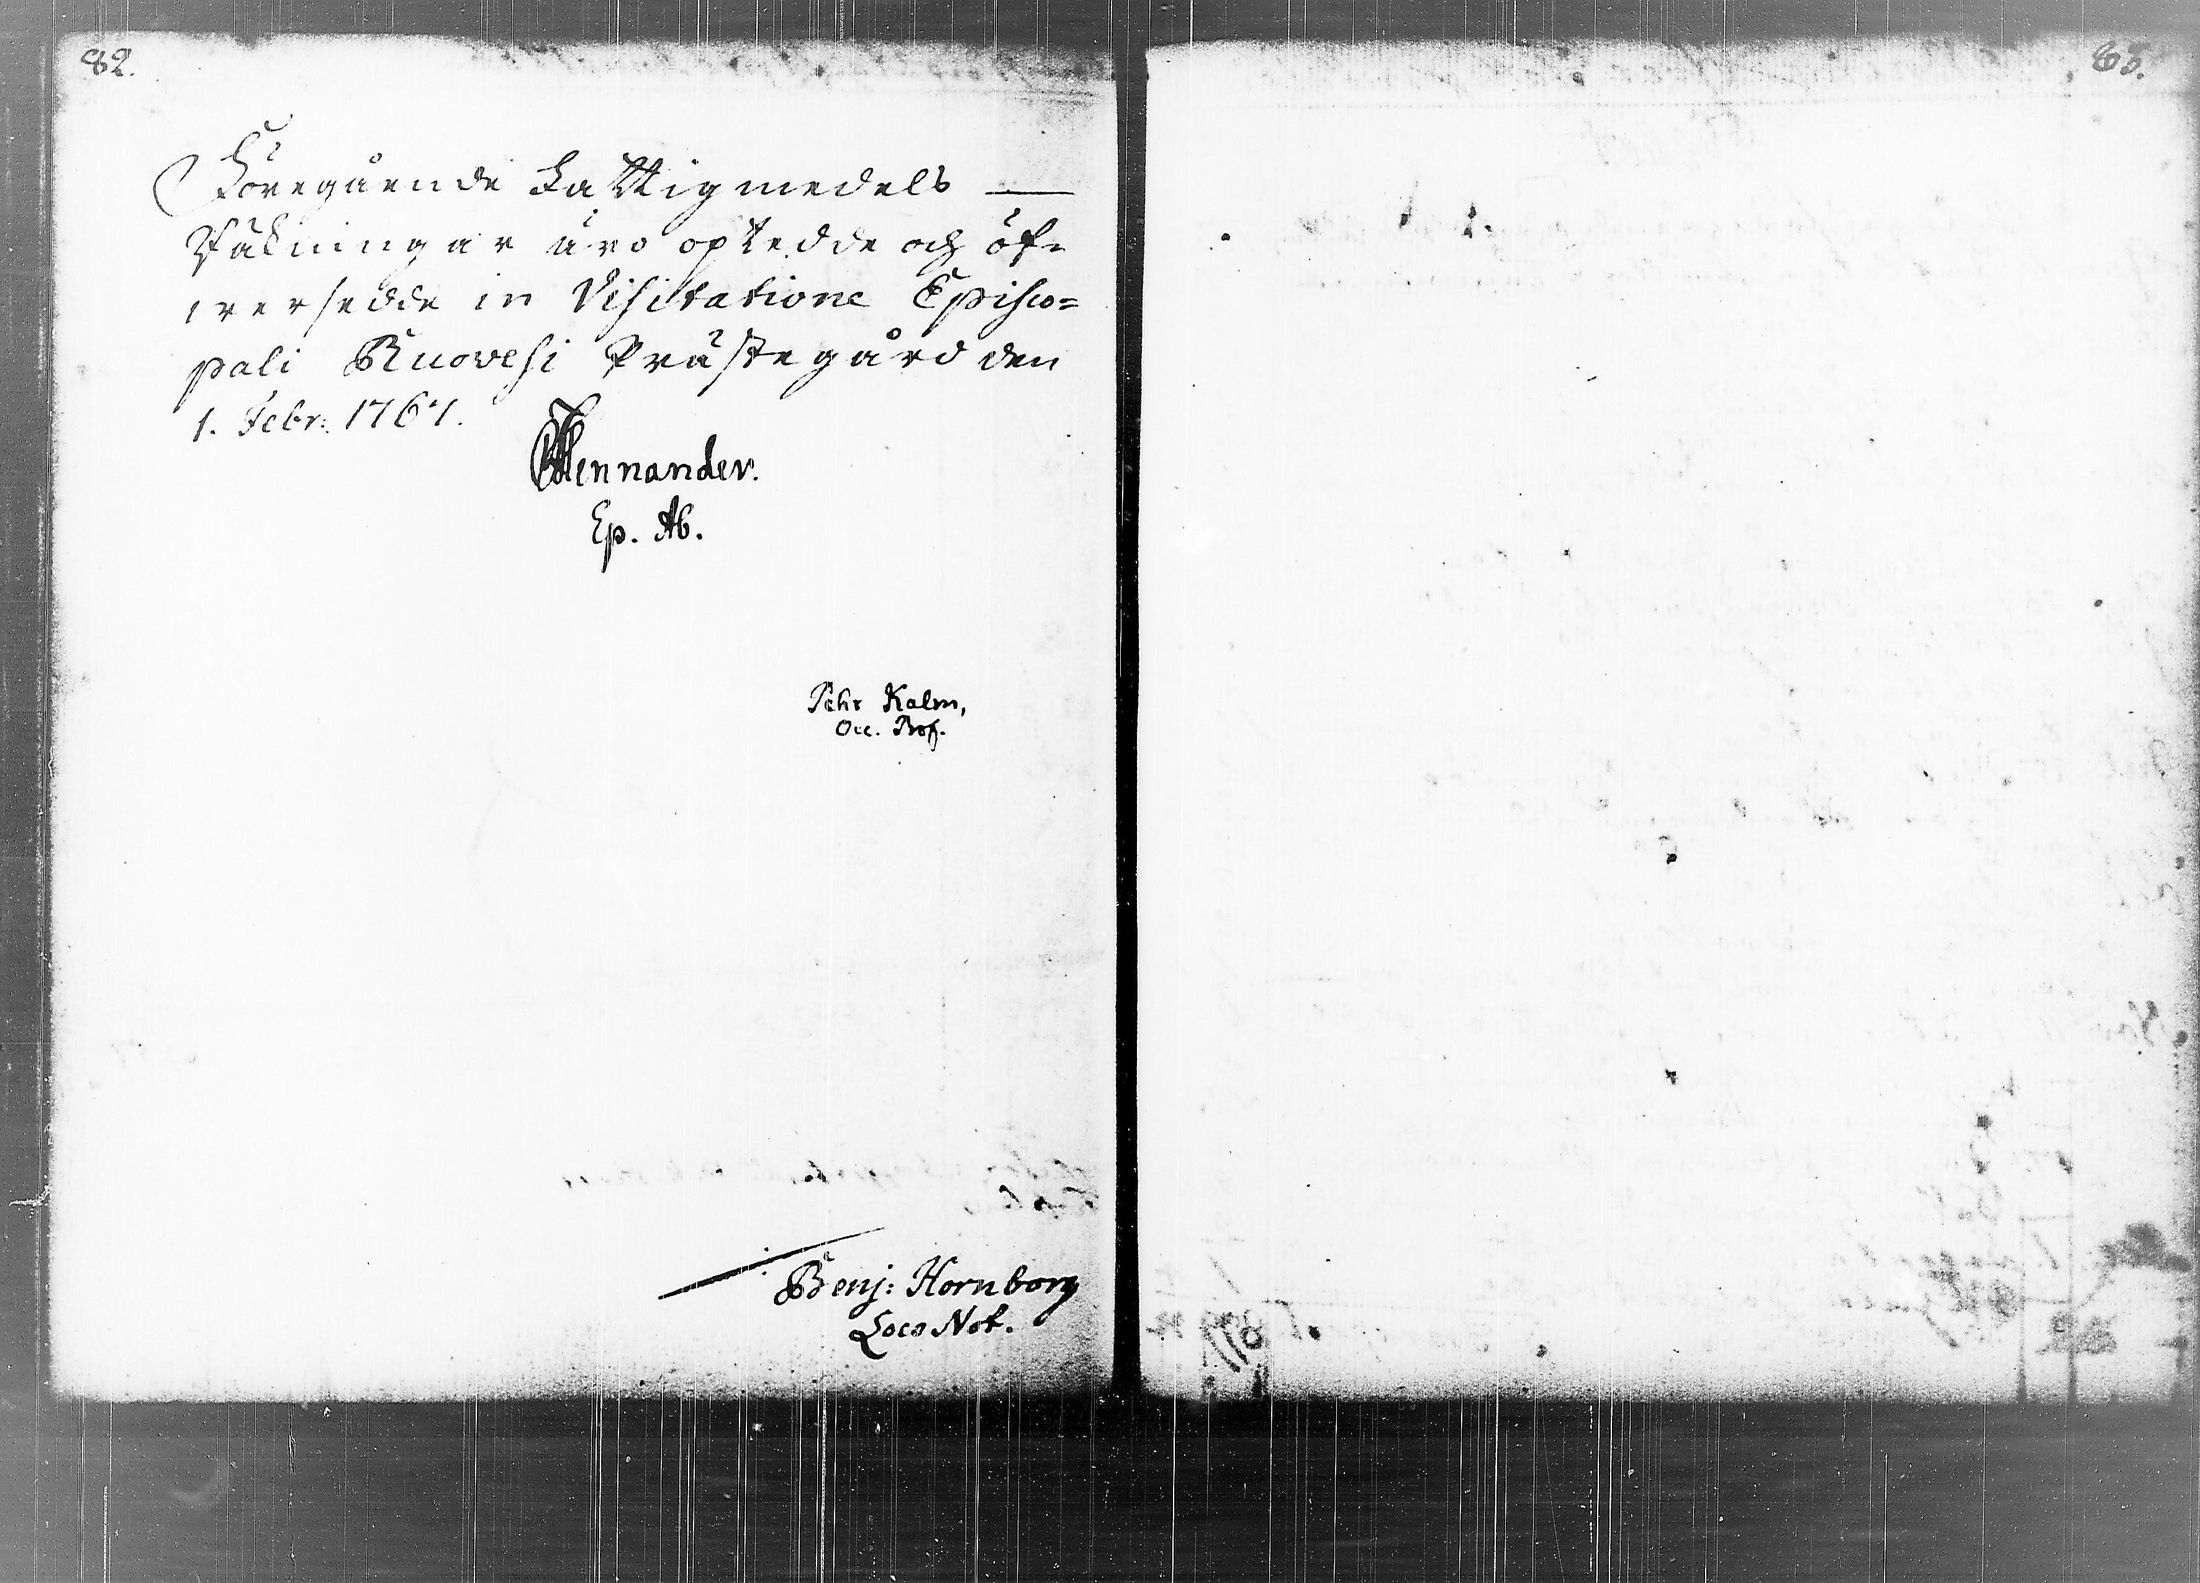 82.
Föregående Fattigmedels
Räkningar äro optedde och öf-
wersedde in Visitatione Episco=
pali Ruovesi Prästegård den
1. Febr: 1767.
CFMennander.
Ep. Ab.
Pehr Kalm,
Oec. Prof.
Benj: Hornborg
Loco Not.